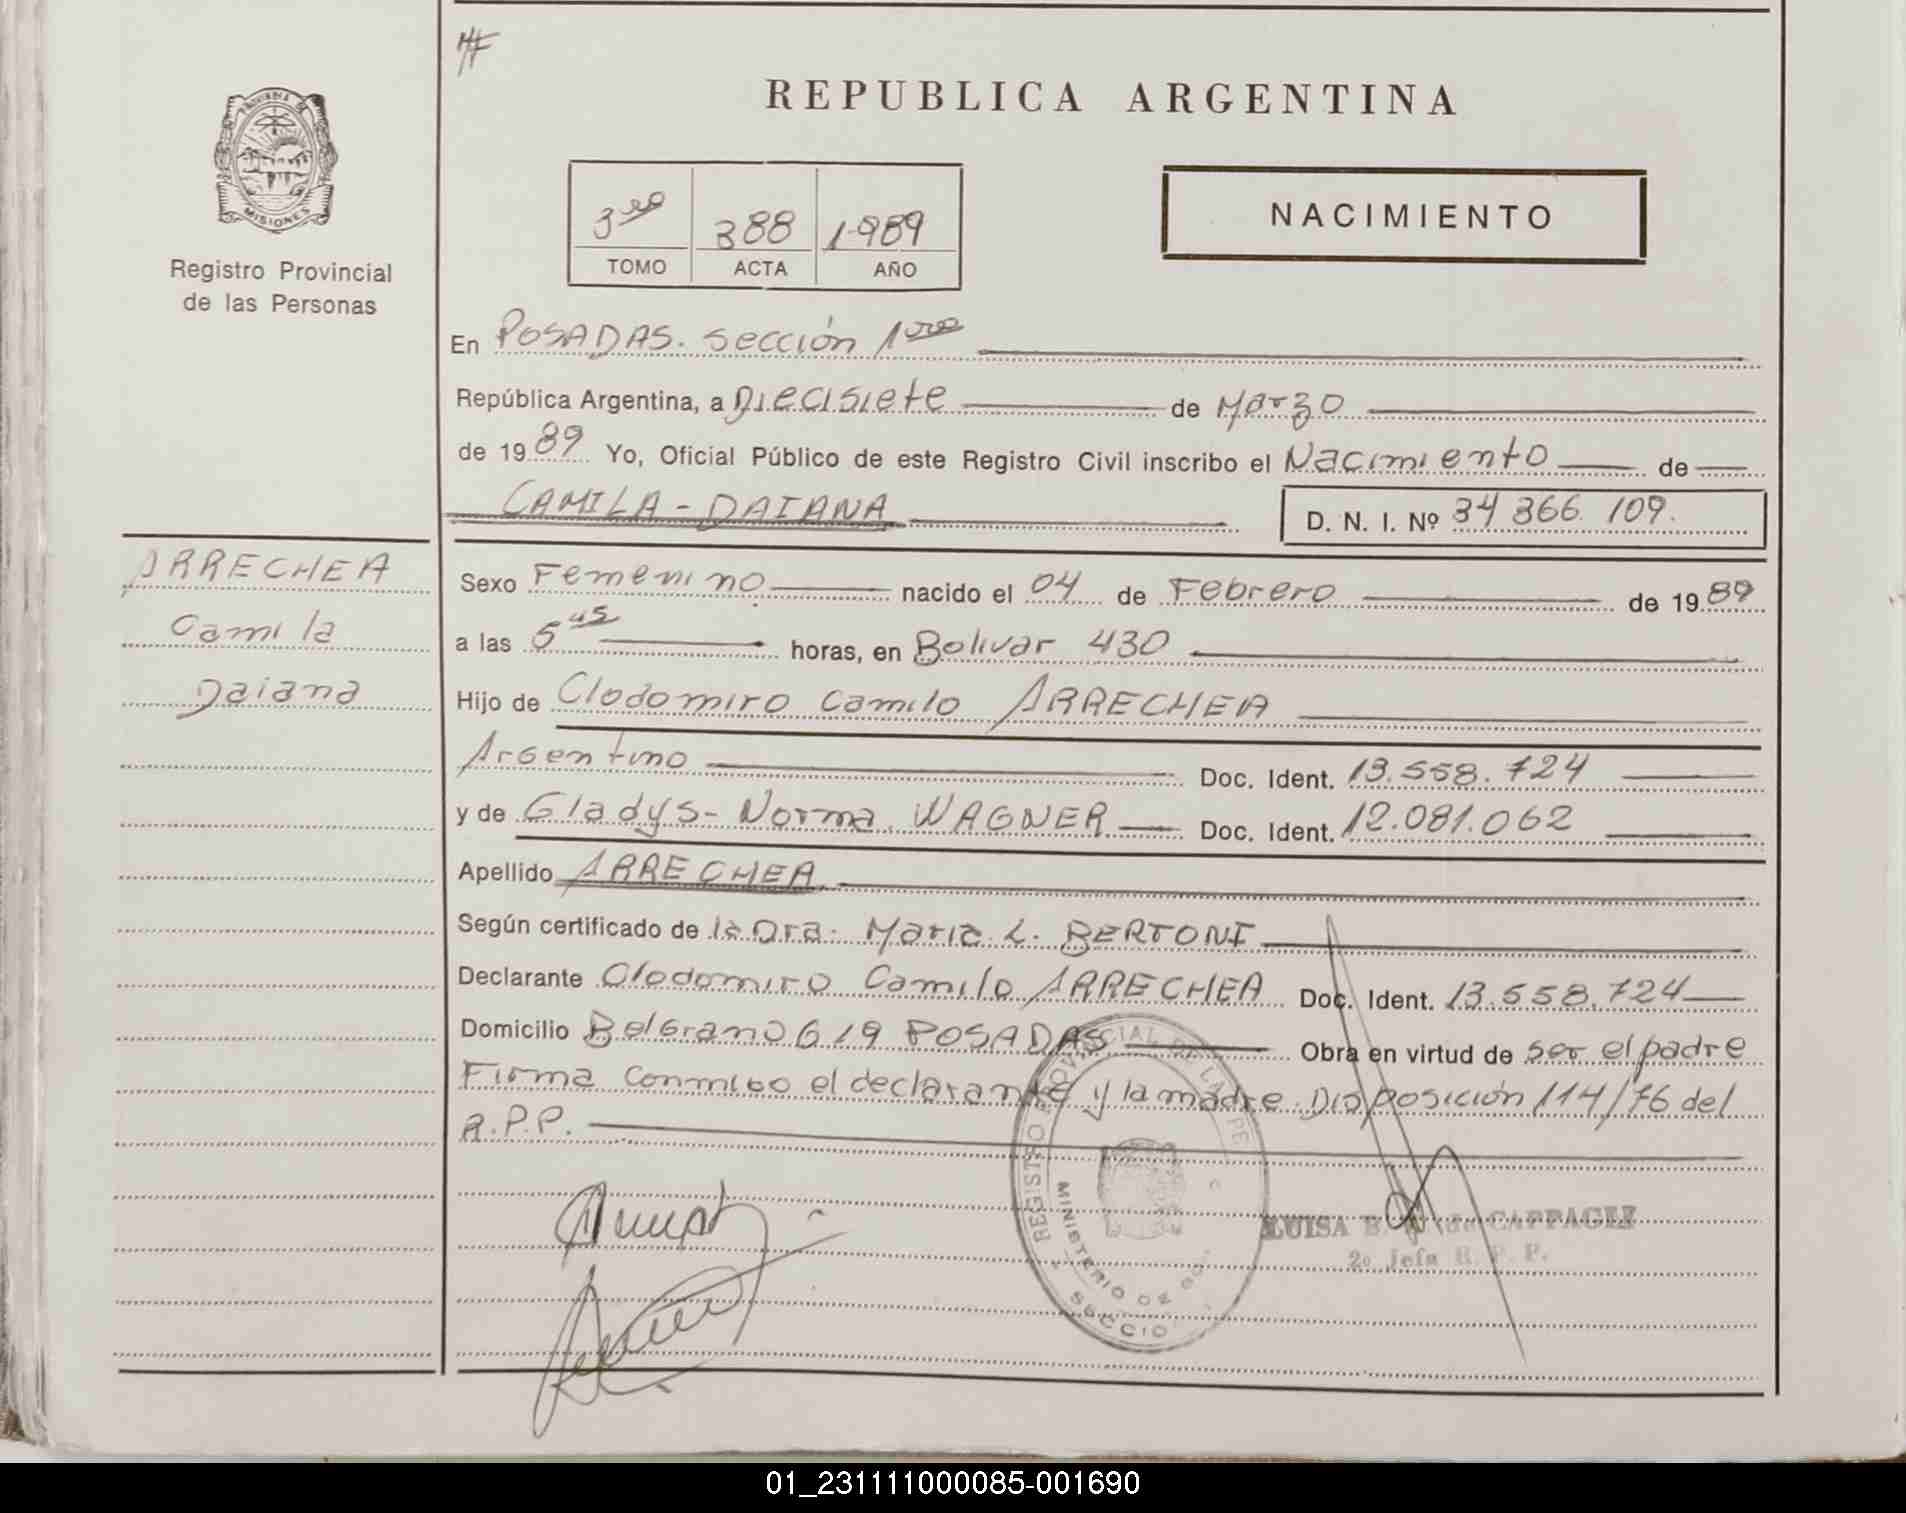 REPUBLICA ARGENTINA
PROVINCIA DE
MISIONES
Registro Provincial
de las Personas
3ro 388 1989
TOMO ACTA AÑO
NACIMIENTO
En POSADAS. sección 1ra
República Argentina, a Diecisiete de Marzo
de 1989 Yo, Oficial Público de este Registro Civil inscribo el Nacimiento de
CAMILA - DAIANA D. N. I. Nº 34 366. 109.
ARRECHEA
Camila
Daiana
Sexo Femenino nacido el 04 de Febrero de 1989
a las 5 45 horas, en Bolivar 430
Hijo de Clodomiro Camilo ARRECHEA
Argentino Doc. Ident. 13.558.724
y de Gladys- Norma WAGNER Doc. Ident. 12.081.062
Apellido ARRECHEA
Según certificado de la Dra. Maria L. BERTONI
Declarante Clodomiro Camilo ARRECHEA Doc. Ident. 13.558.724
Domicilio Belgrano 619 POSADAS Obra en virtud de ser el padre
Firma conmigo el declarante y la madre. Disposición 114/76 del
R.P.P.
REGISTRO PROVINCIAL DE LAS PE
MINISTERIO DE GO
SECCIO
LUISA B. de
2º Jefa R. P. P.
01_231111000085-001690